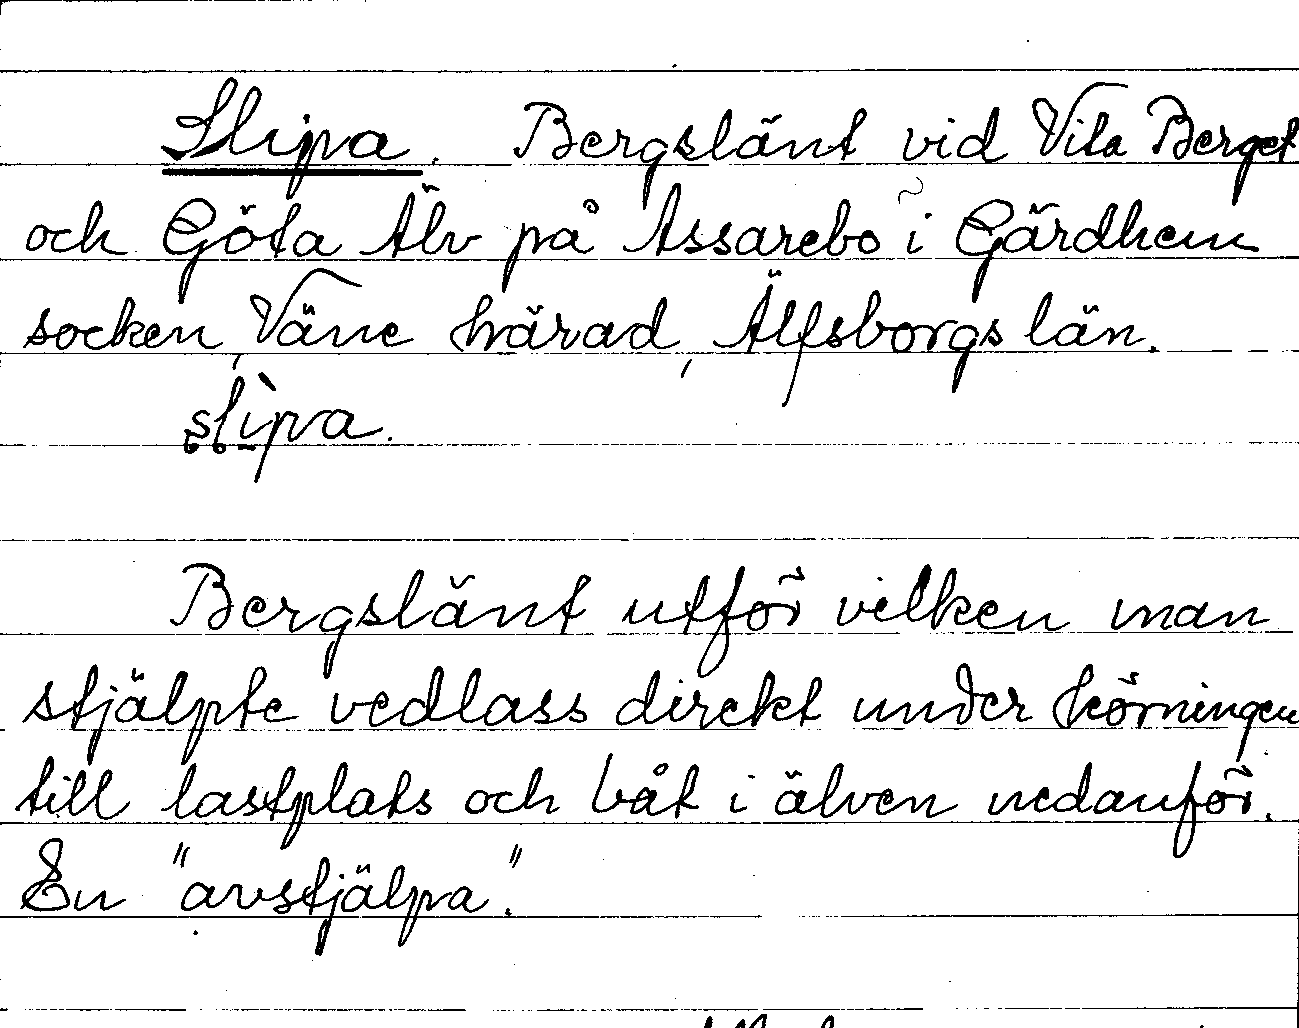 Slipa. Bergslänt vid Vita Berget
och Göta Älv på Assarebo i Gärdhem
socken, Väne härad, Älfsborgs län.
slìpa.
Bergslänt utför vilken man
stjälpte vedlass direkt under körningen
till lastplats och båt i älven nedanför.
En "avstjälpa".